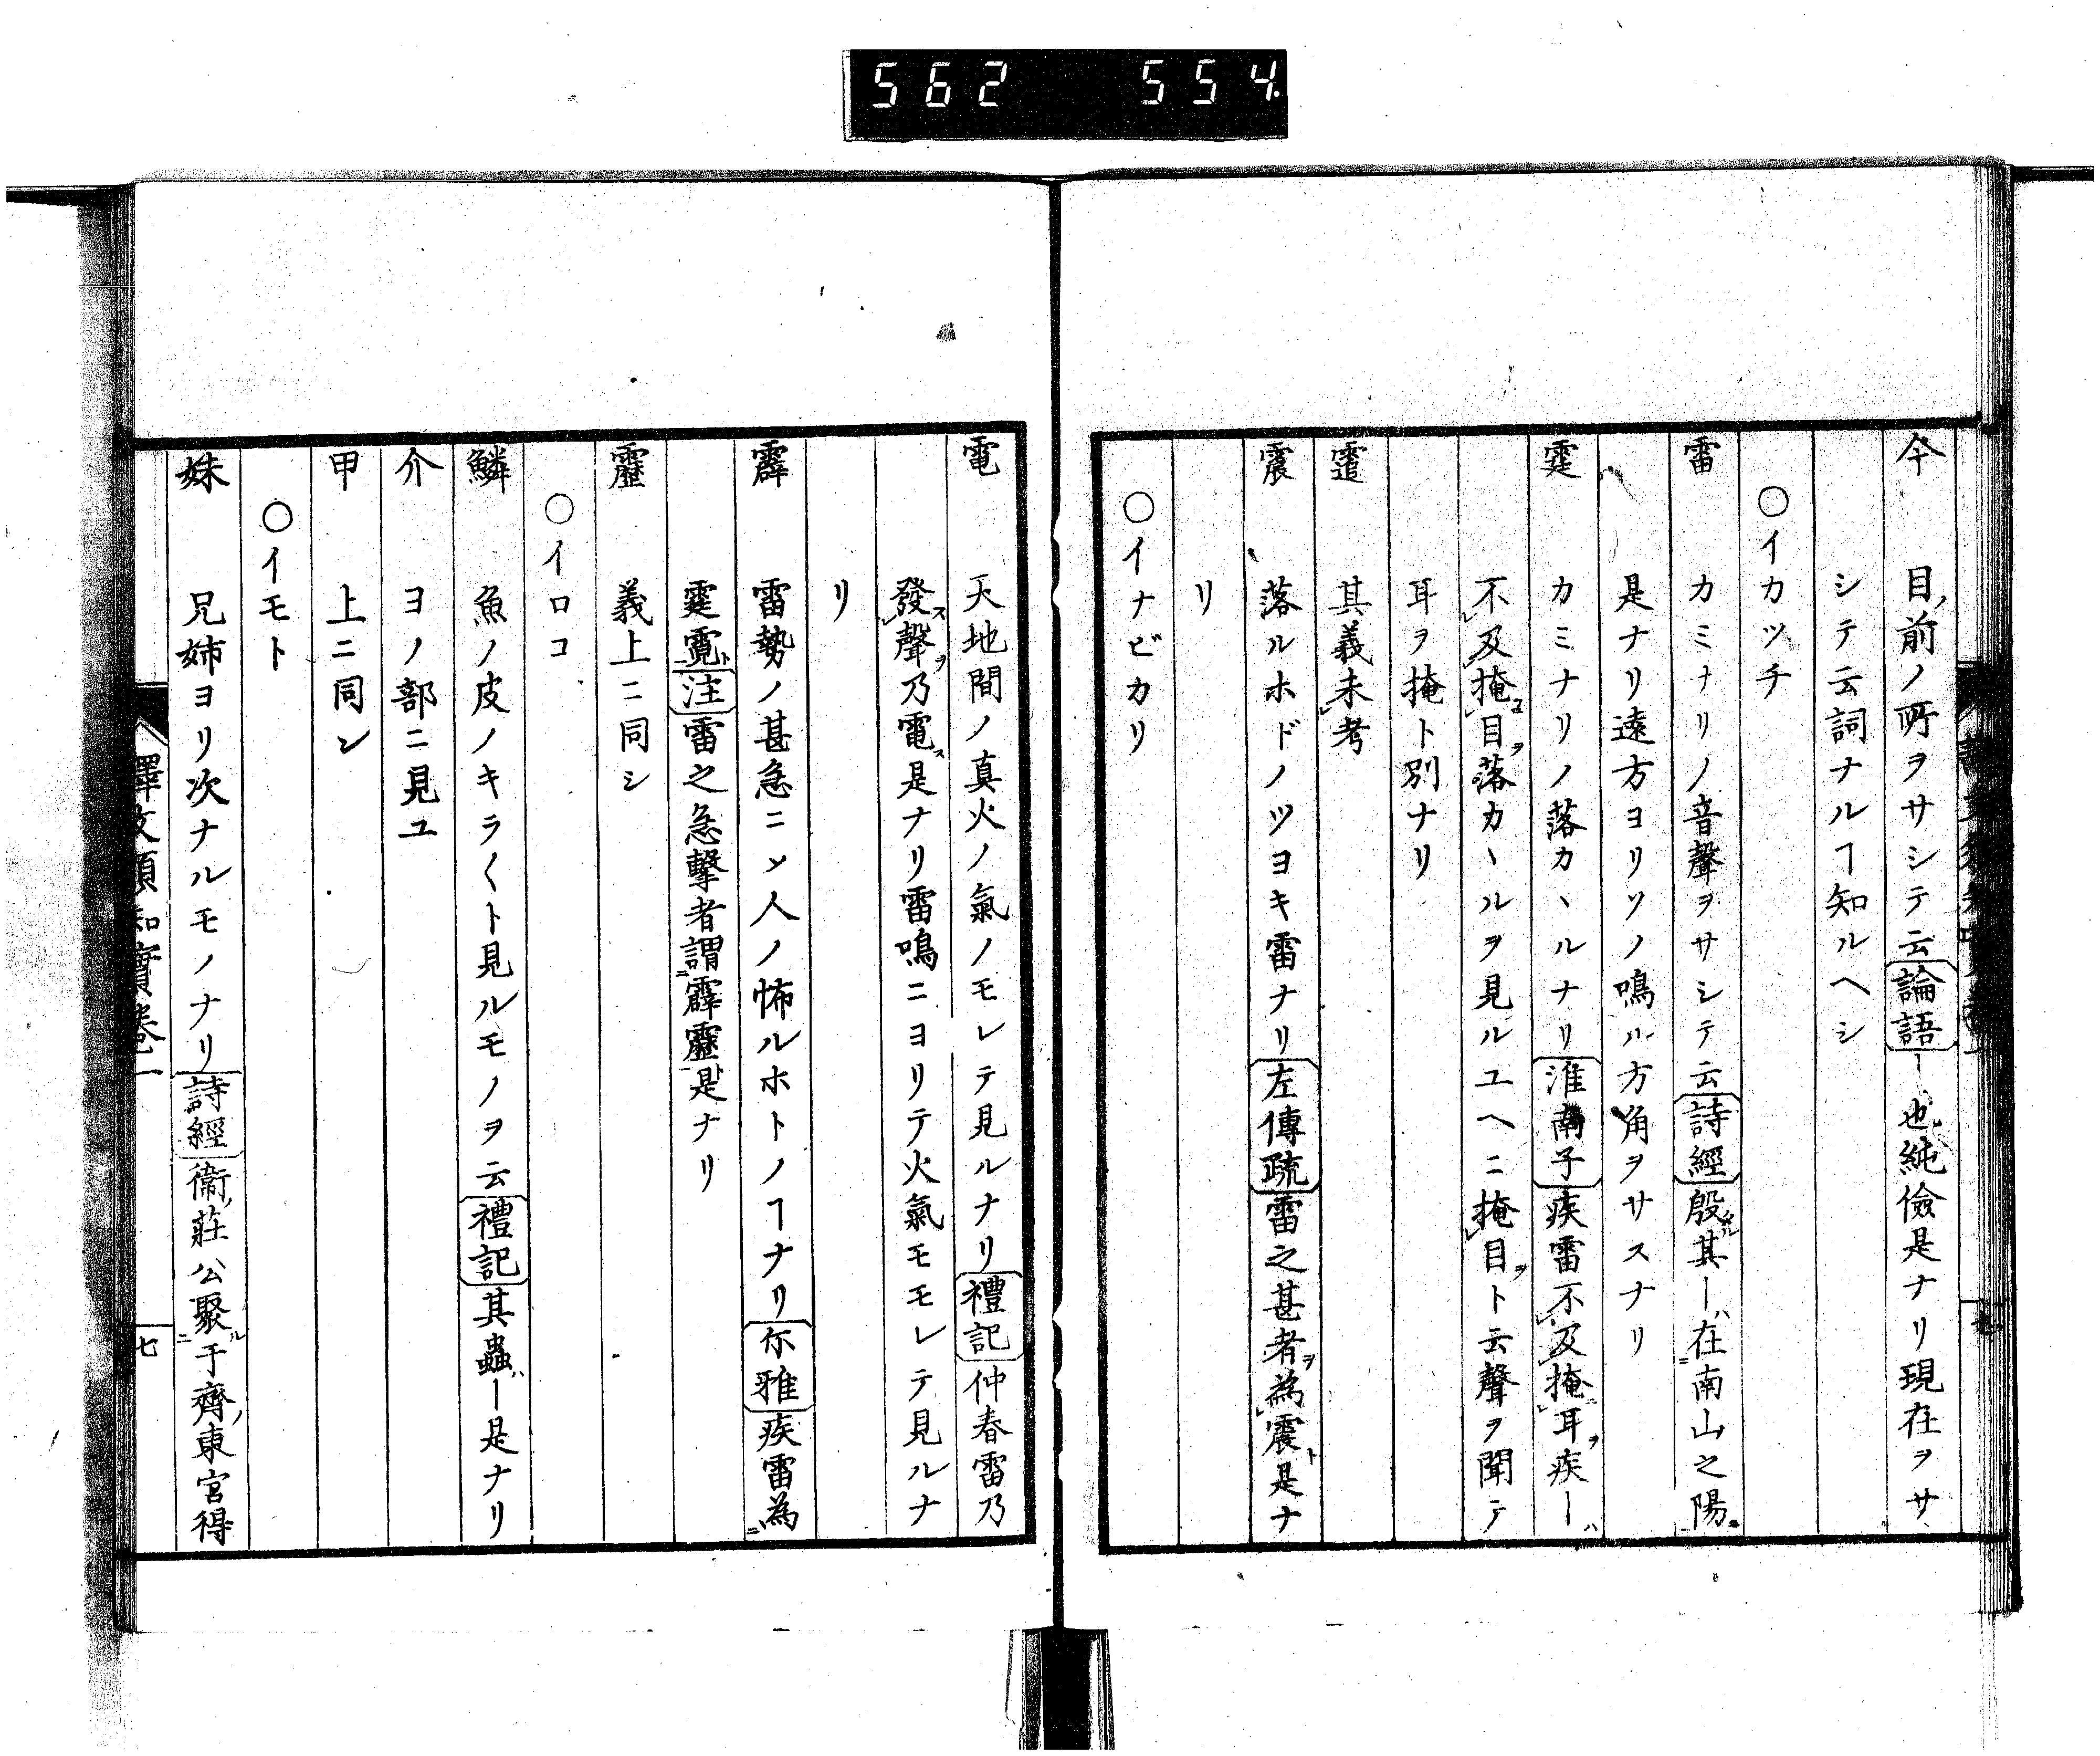 562 554
今 目前ノ所ヲサシテ云論語ー也純儉是ナリ現在ヲサ
シテ云詞ナルヿ知ルヘシ
○イカツチ
雷 カミナリノ音聲ヲサシテ云詩經殷其ー在南山之陽
是ナリ遠方ヨリソノ鳴ル方角ヲサスナリ
霆 カミナリノ落カヽルナリ淮南子疾雷不及掩耳疾ー
不及掩目落カヽルヲ見ルユヘニ掩目ト云聲ヲ聞テ
耳ヲ掩ト別ナリ
其義未考
震 落ルホドノツヨキ雷ナリ左傳疏雷之甚者為震是ナ
リ
○イナビカリ
電 天地間ノ真火ノ氣ノモレテ見ルナリ禮記仲春雷乃
發聲乃電是ナリ雷鳴ニヨリテ火氣モモレテ見ルナ
リ
霹 雷勢ノ甚急ニシテ人ノ怖ルホトノヿナリ尔雅疾雷為
霆霓注雷之急擊者謂霹靂是ナリ
靂 義上ニ同シ
○イロコ
鱗 魚ノ皮ノキラ〱ト見ルモノヲ云禮記其蟲ー是ナリ
介 ヨノ部ニ見ユ
甲 上ニ同シ
○イモト
妹 兄姉ヨリ次ナルモノナリ詩經衞莊公聚于齊東宮得
譯文須知實卷一
七